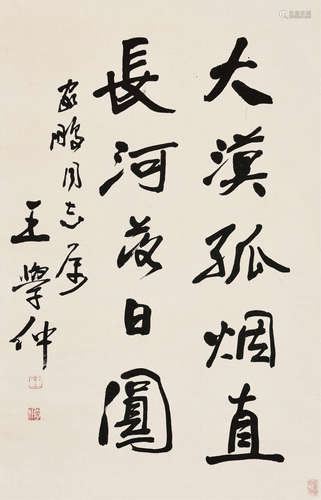 大漠孤烟直
長河落日圓
家鵬同志属
王學仲